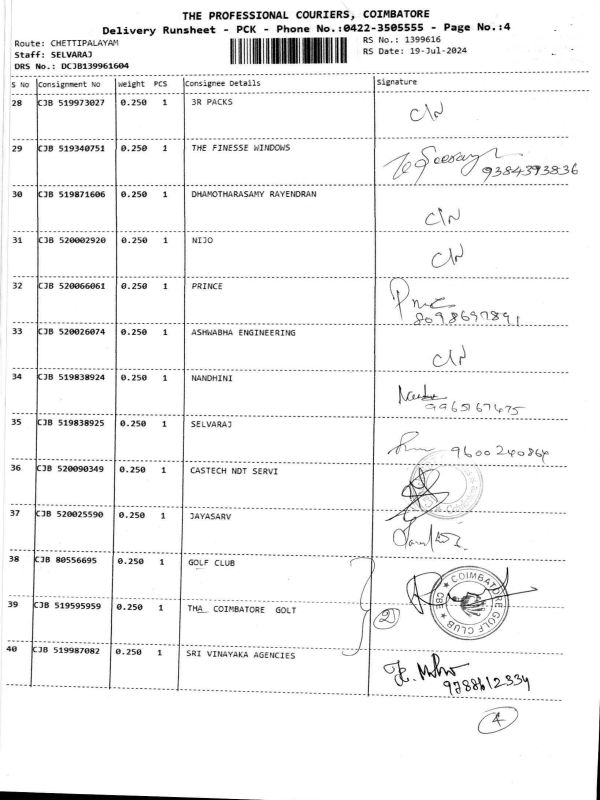 THE PROFESSIONAL COURIERS, COIMBATORE
Delivery Runsheet - PCK - Phone No.:0422-3505555 - Page No.:4
Route: CHETTIPALAYAM RS No.: 1399616
Staff: SELVARAJ RS Date: 19-Jul-2024
DRS No.: DCJB139961604
S No Consignment No Weight PCS Consignee Details Signature
28 CJB 519973027 0.250 1 3R PACKS C/N
29 CJB 519340751 0.250 1 THE FINESSE WINDOWS
9384393836
30 CJB 519871606 0.250 1 DHAMOTHARASAMY RAYENDRAN C/N
31 CJB 520002920 0.250 1 NIJO C/N
32 CJB 520066061 0.250 1 PRINCE
8098697891
33 CJB 520026074 0.250 1 ASHWABHA ENGINEERING C/N
34 CJB 519838924 0.250 1 NANDHINI
9965167475
35 CJB 519838925 0.250 1 SELVARAJ 9600240864
36 CJB 520090349 0.250 1 CASTECH NDT SERVI
37 CJB 520025590 0.250 1 JAYASARV
38 CJB 80556695 0.250 1 GOLF CLUB
39 CJB 519595959 0.250 1 THA COIMBATORE GOLT 2
COIMBATORE GOLF CLUB CBE
40 CJB 519987082 0.250 1 SRI VINAYAKA AGENCIES
9788612334
4